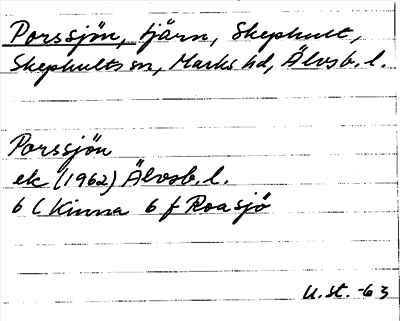 Porssjön, tjärn, Skephult,
Skephults sn, Marks hd, Älvsb. l.
Porssjön
ek (1962) Älvsb. l.
6 C Kinna 6 f Roasjö
U. st. -63